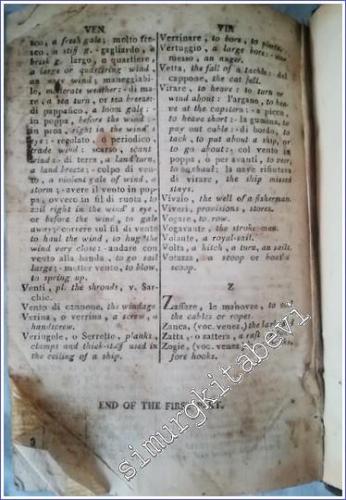 VEN.
VIR
sco, a fresh gale; molto fre-
sco, a stiff g. gagliardo, a
brisk g. largo, a quartiere,
a large or quartering wind
an may wind; maneggiabi-
lo, moderate weather: di ma-
re, a sea turn, or sea breeze:
di pappafico, a loom gale:
in poppa, before the wind:
in proa, right in the wind's
eye: regolato, o periodico,
trade wind: scarso, scant
wind: di terra, a land turn,
a land breeze: colpo di ven-
to, a violent gale of wind, a
storm: avere il vento in pop-
pa, ovvero in fil di ruota, to
sail right in the wind's eye,
or before the wind, to gale
away: correre sul fil di vento
to haul the wind, to hug the
wind very close: andare con
vento alla banda, to go sail
large: metter vento, to blow,
to spring up.
Venti, pl. the shrouds, v. Sar-
chie.
Vento di cannone, the windage
Verina, o verrina, a screw, a
handscrew.
Veringole, o Serretto, planks,
clamps and thick-stuff used in
the ceiling of a ship.
Verrinare, to bore, to pierce.
Vertuggio, a large bore:
messo, an auger.
Vetta, the fall of a tackle: del
cappone, the cat fall.
Virare, to heave: to turn or
wind about: l'argano, to hea-
ve at the capstern: a picca,
to heave short: la gumina, to
pay out cable: di bordo, to
tack, to put about a ship, or
to go about: col vento in
poppa, o per avanti, to veer,
to nave rifiutera
di virare, the ship missed
stays.
Vivaio, the well of a fisherman.
Viveri, provisions, stores.
Vogare, to row.
Vogavante, the stroke man.
Volante, a royal-sail.
Volta, a hitch, a turn, an
Votazza, a scoop or boat's
scoop.
Z
Zaffare, le manovre, to
the cables or ropes.
Zanca, (voc. venez.) the
Zatta, o zattera, a raft
Zogie, (voc. venez.)
fore hooks.
END OF THE FIRST PART.
simurgkitabevi